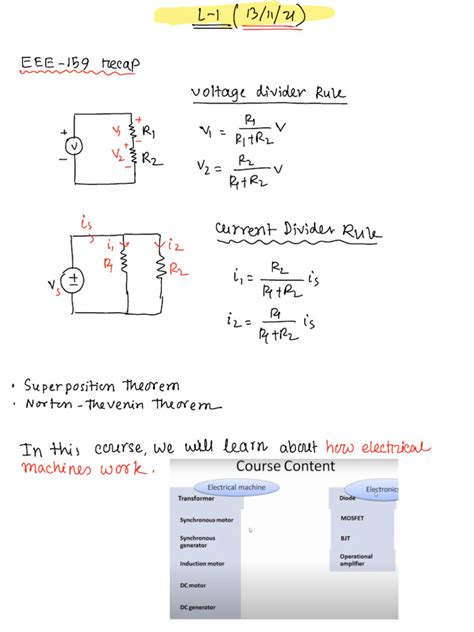 L-1 (13/11/21)
EEE-159 recap
Voltage divider Rule
V
+
-
V1
+
-
R1
V2
+
-
R2
V1 = R1/(R1+R2) V
V2 = R2/(R1+R2) V
Current Divider Rule
is
i1
i2
R1
R2
Vs
+
-
i1 = R2/(R1+R2) is
i2 = R1/(R1+R2) is
• Superposition Theorem
• Norton-Thevenin Theorem
In this course, we will learn about how electrical
machines work.
Course Content
Electrical machine
Transformer
Synchronous motor
Synchronous
generator
Induction motor
DC motor
DC generator
Electronics
Diode
MOSFET
BJT
Operational
amplifier